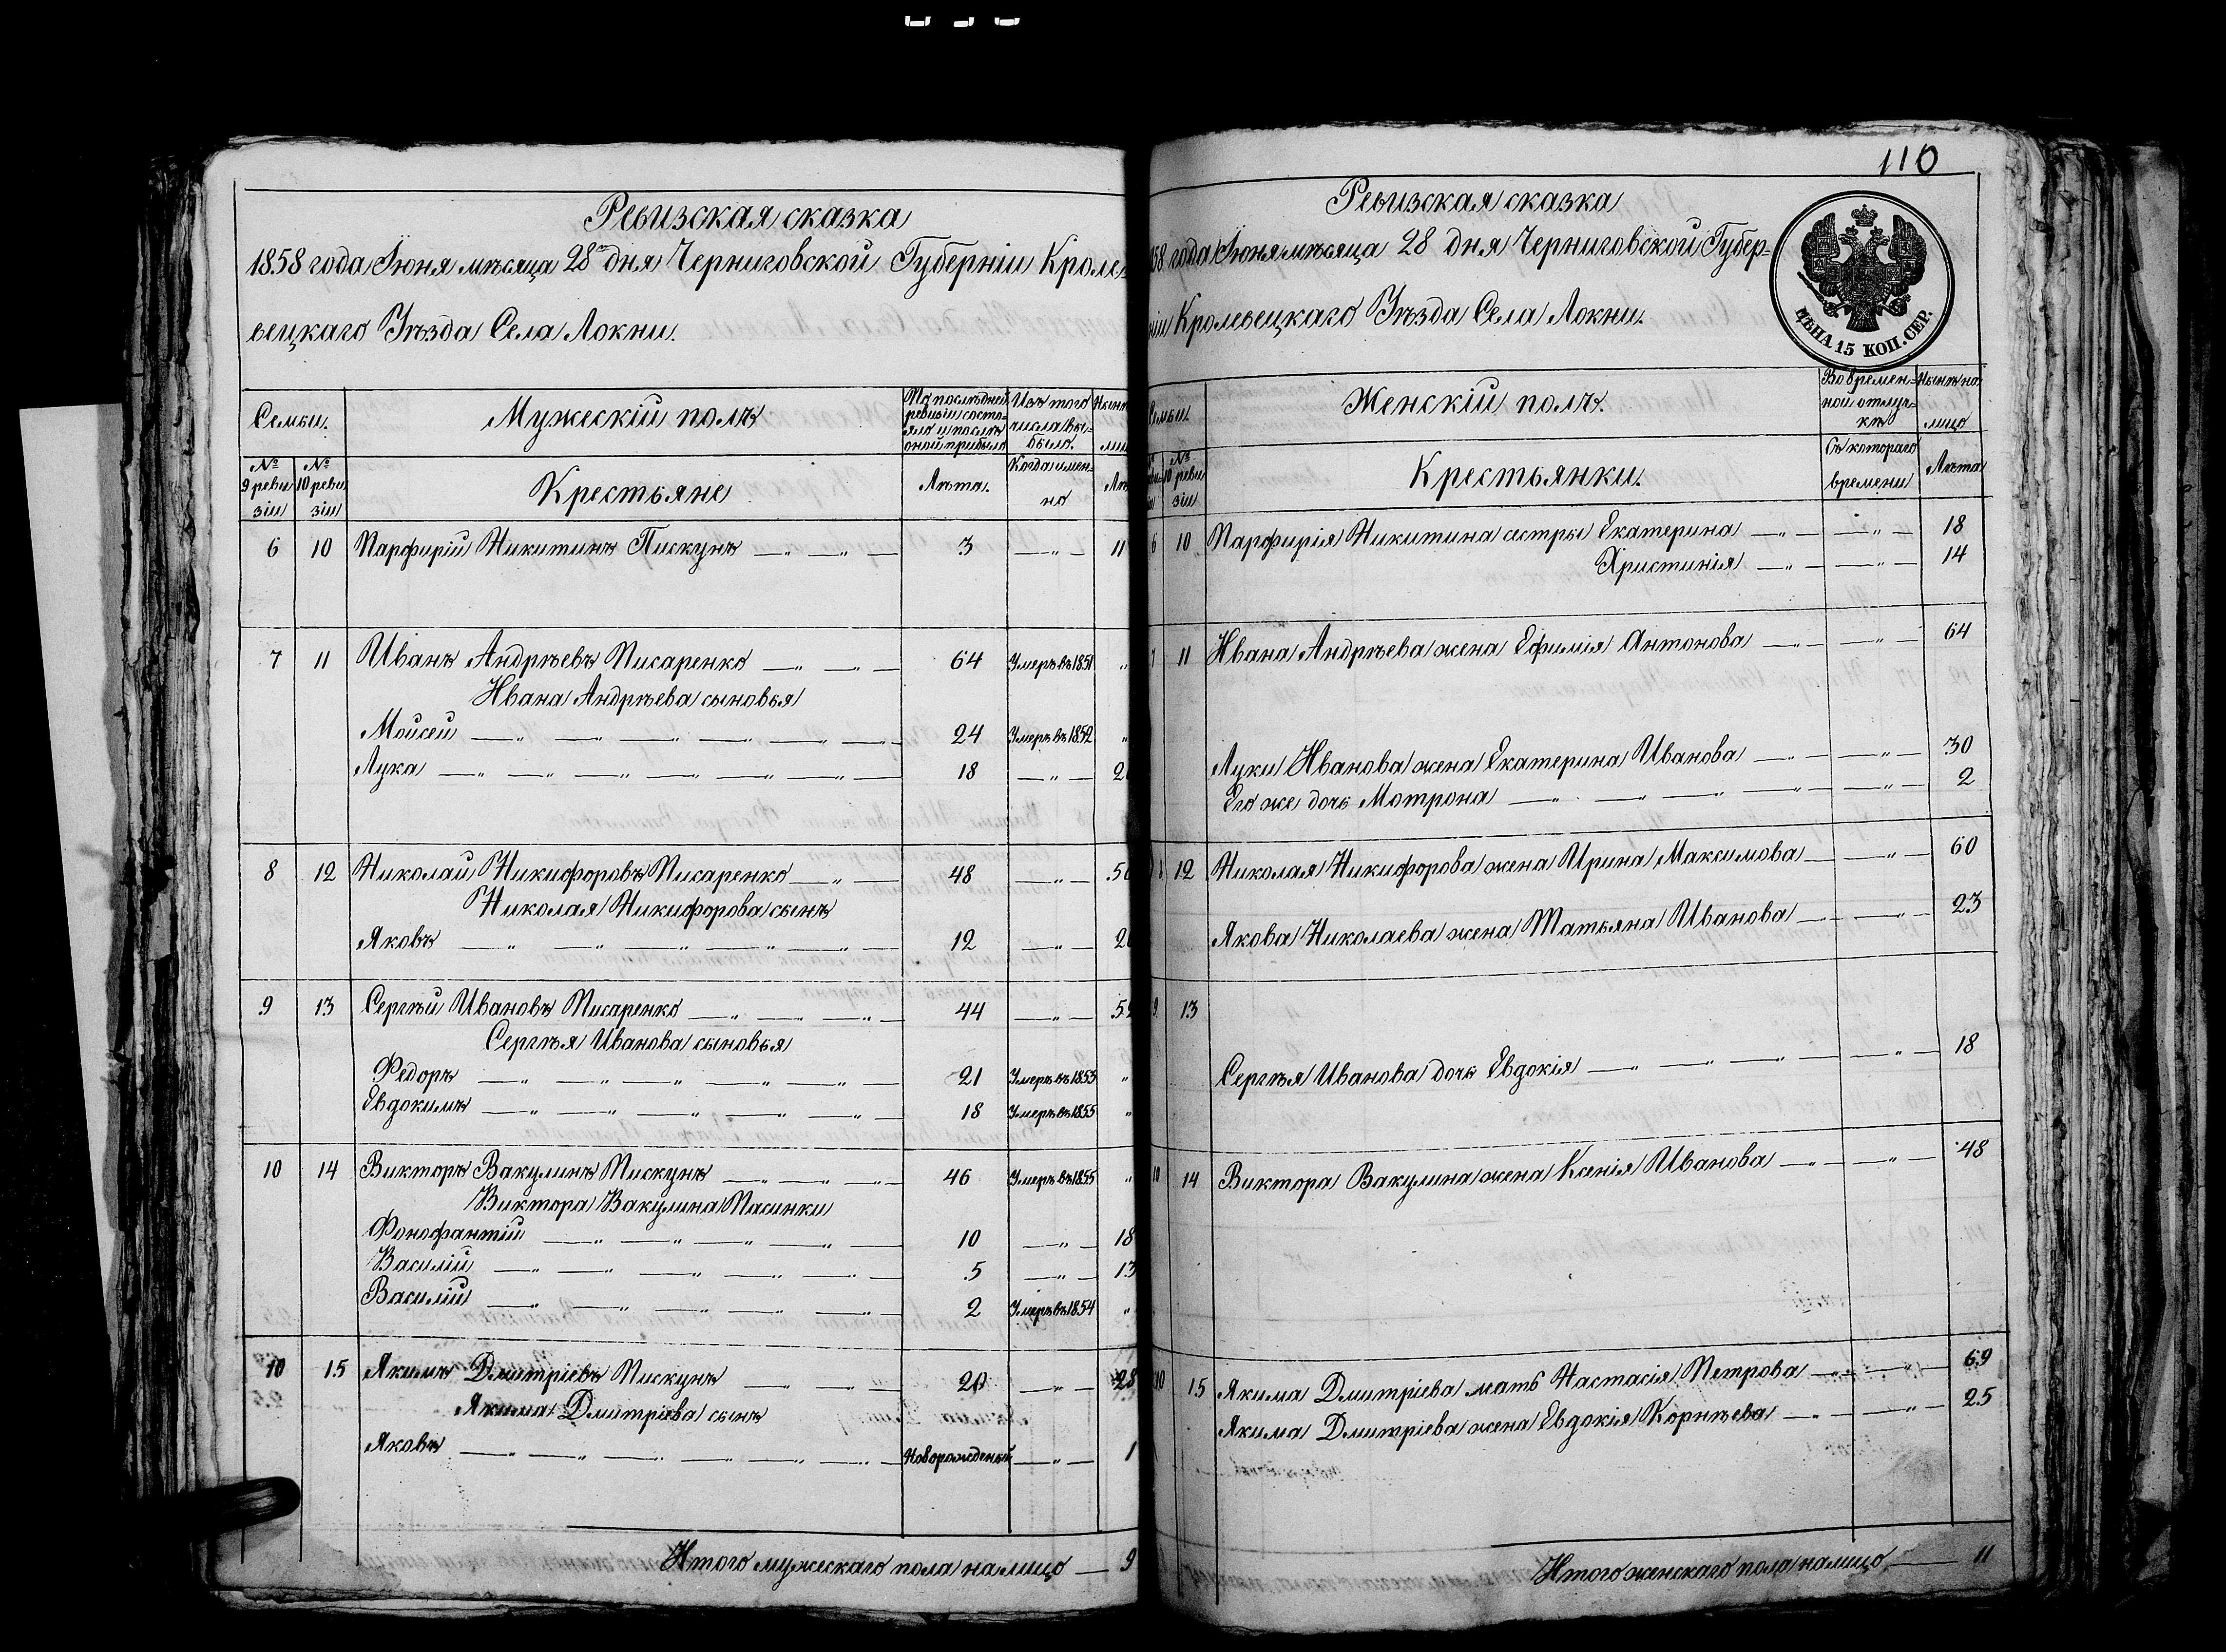 Ревизская сказка
1858 года Іюня мѣсяца 28го дня Черниговской Губерніи Кроле-
вецкаго Уѣзда Села Локни.
Семьи. Мужескій полъ По послѣдней ревизіи состояло и послѣ оной прибыло Изъ того числа выбыло. Нынѣ
№ 9 ревизіи № 10 ревизіи Крестьяне Лѣта. Когда именно
6 10 Парфирій Никитинъ Пискунъ — " — " — 3 — " — 11
7 11 Иванъ Андрѣевъ Писаренко — " — " — 64 Умеръ въ 1851 "
Ивана Андрѣева сыновья
Мойсей — " — " — " — " — " — 24 Умеръ въ 1852 "
Лука — " — " — " — " — " — " — 18 — " — 2
8 12 Николай Никифоровъ Писаренко — " — 48 — " — 5
Николая Никифорова сынъ
Яковъ — " — " — " — " — " — 12 — " — 2
9 13 Сергѣй Ивановъ Писаренко — " — " — " — 44 — " — 5
Сергѣя Иванова сыновья
Федоръ — " — " — " — " — " — 21 Умеръ въ 1853 "
Евдокимъ — " — " — " — " — " — 18 Умеръ въ 1855 "
10 14 Викторъ Вакулинъ Пискунъ — " — " — " — 46 Умеръ въ 1855 "
Виктора Вакулина Пасинки
Фонофантій — " — " — " — " — 10 — " — 18
Василій — " — " — " — " — " — 5 — " — 13
Василій — " — " — " — " — " — 2 Умеръ въ 1854 "
10 15 Якимъ Дмитріевъ Пискунъ — " — " — 20 — " — 28
Якима Дмитріева сынъ
Яковъ — " — " — " — " — " — " — Новорожденый — " — 1
Итого мужескаго пола на лицо — 9
110
Ревизская сказка
58 года Іюня мѣсяца 28 дня Черниговской Губер-
ніи Кролевецкаго Уѣзда Села Локни.
ЦѢНА 15 КОП. СЕР.
Семьи. Женскій полъ. Во временной отлучкѣ Нынѣ на лицо
№ 10 ревизіи Крестьянки. Съ котораго времени Лѣта
6 10 Парфирія Никитина сестры Екатерина — " — — " — 18
Христинія — " — — " — 14
7 11 Ивана Андрѣева жена Ефимія Антонова — " — — " — 64
Луки Иванова жена Екатерина Иванова — " — — " — 30
Его же дочь Мотрона — " — " — " — " — — " — 2
8 12 Николая Никифорова жена Ирина Максимова — — " — 60
Якова Николаева жена Татьяна Иванова — " — — " — 23
9 13
Сергѣя Иванова дочь Евдокія — " — " — " — — " — 18
10 14 Виктора Вакулина жена Ксенія Иванова — " — — " — 48
10 15 Якима Дмитріева мать Настасія Петрова — " — — " — 69
Якима Дмитріева жена Евдокія Корнѣева — " — — " — 25
Итого женскаго пола на лицо — 11